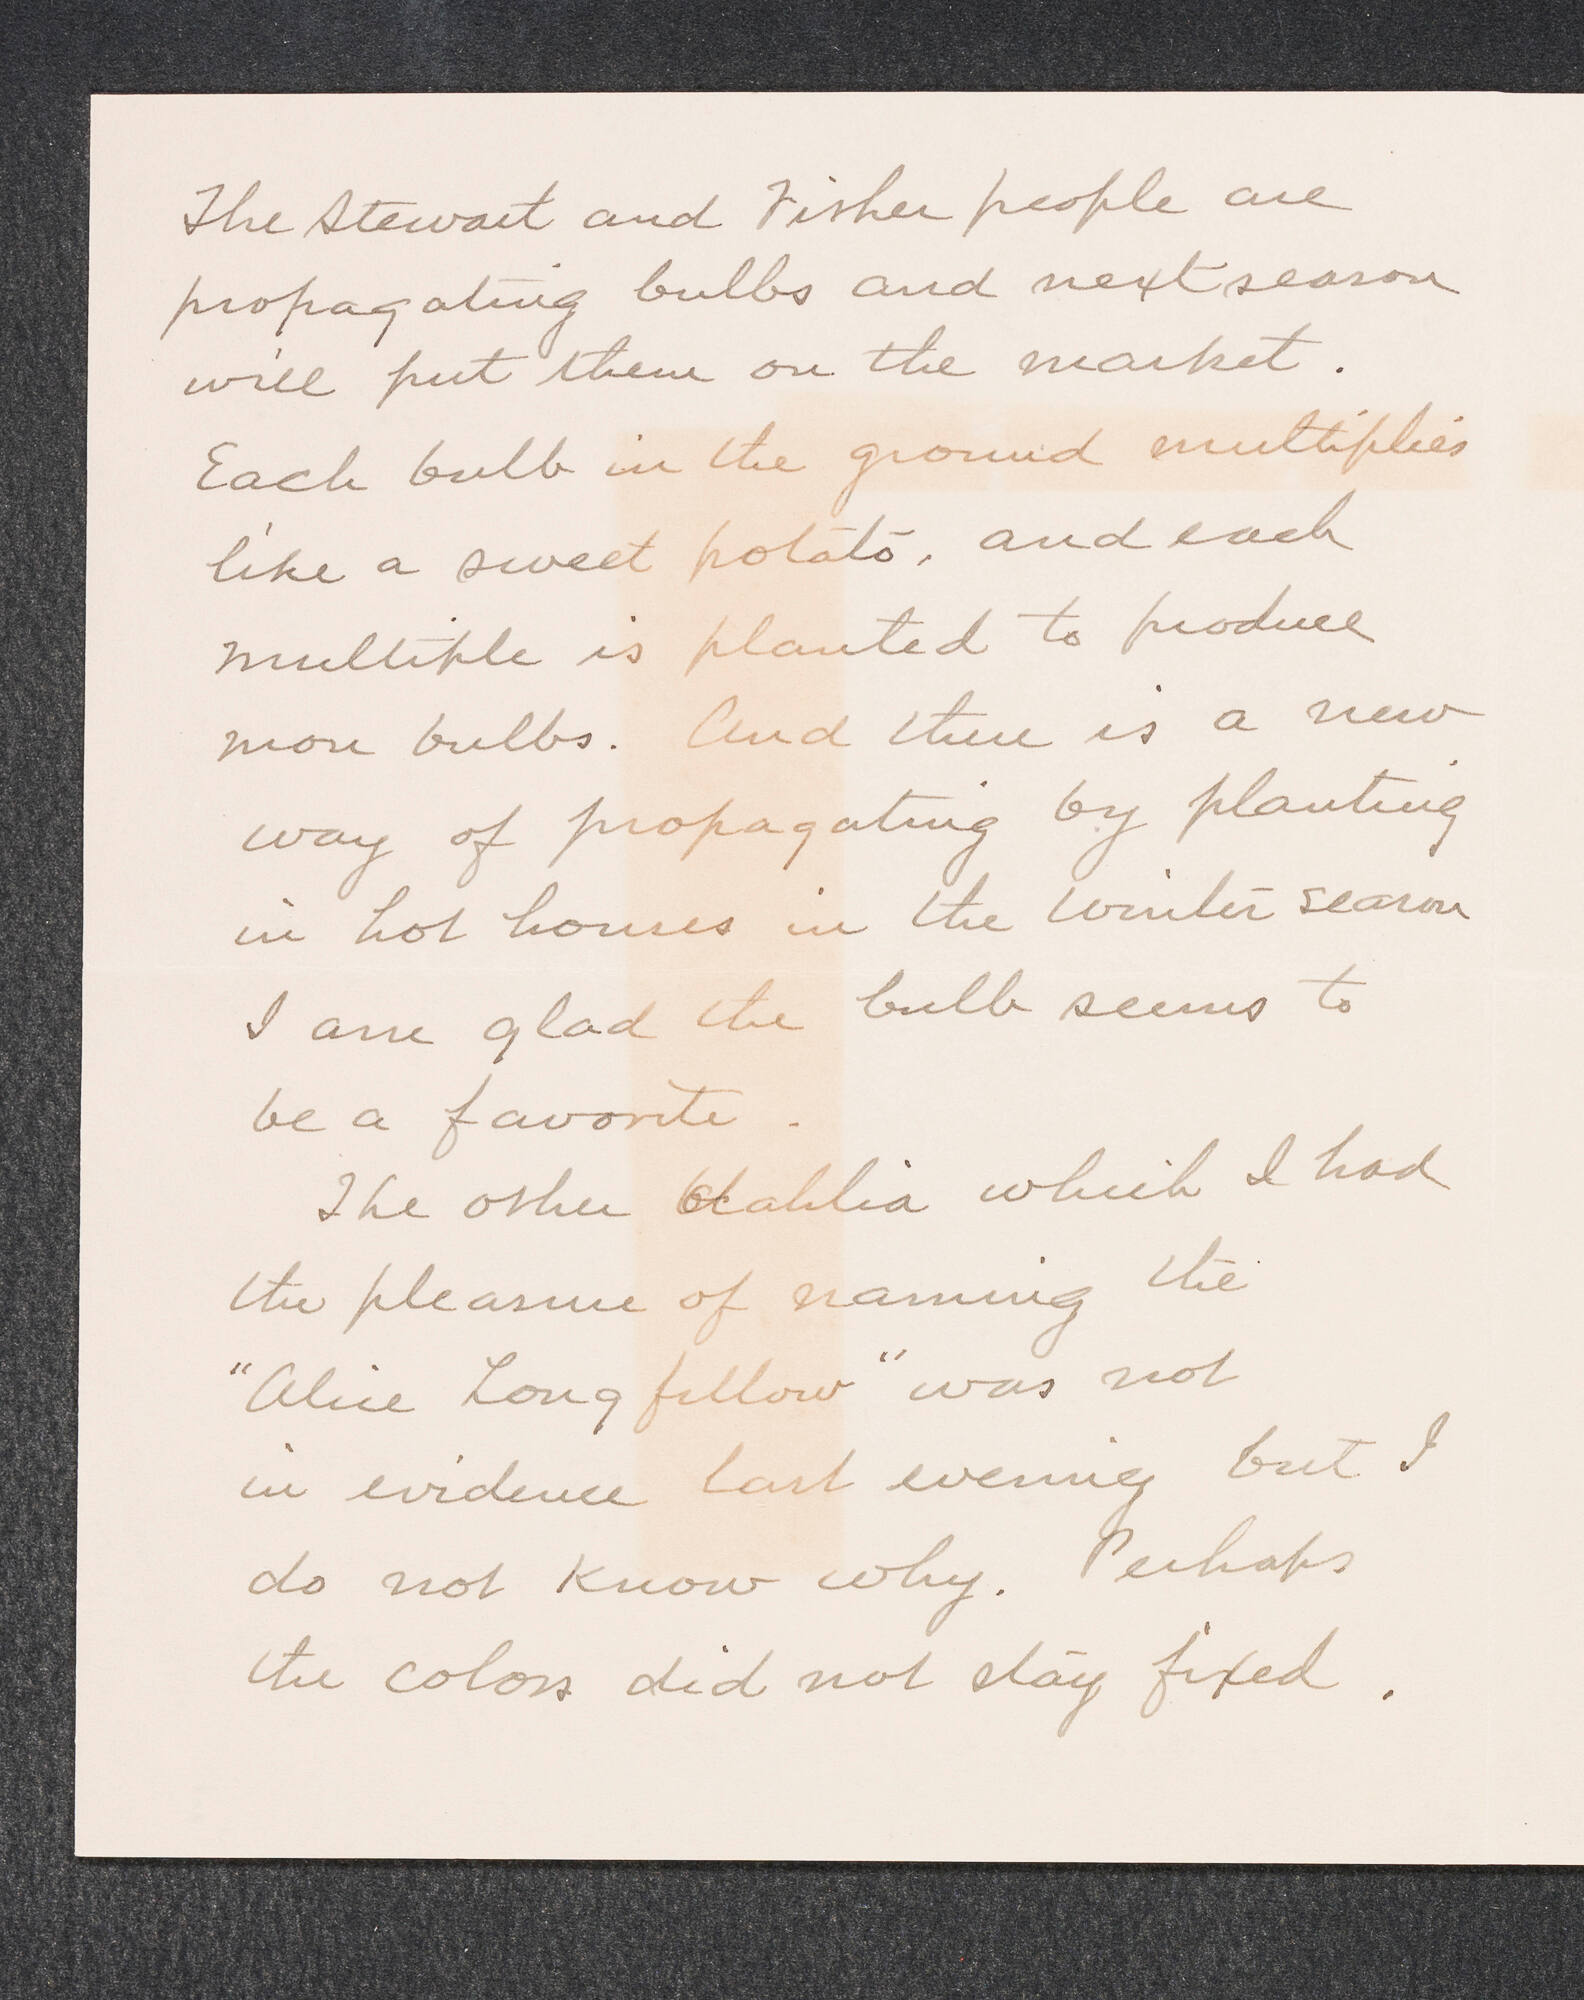 The Stewart and Fisher people are
propagating bulbs and next season
will put them on the market.
Each bulb in the ground multiplies
like a sweet potato, and each
multiple is planted to produce
more bulbs. And there is a new
way of propagating by planting
in hot houses in the winter season
I am glad the bulb seems to
be a favorite.
The other dahlia which I had
the pleasure of naming the
"Alice Longfellow" was not
in evidence last evening but I
do not know why. Perhaps
the colors did not stay fixed.